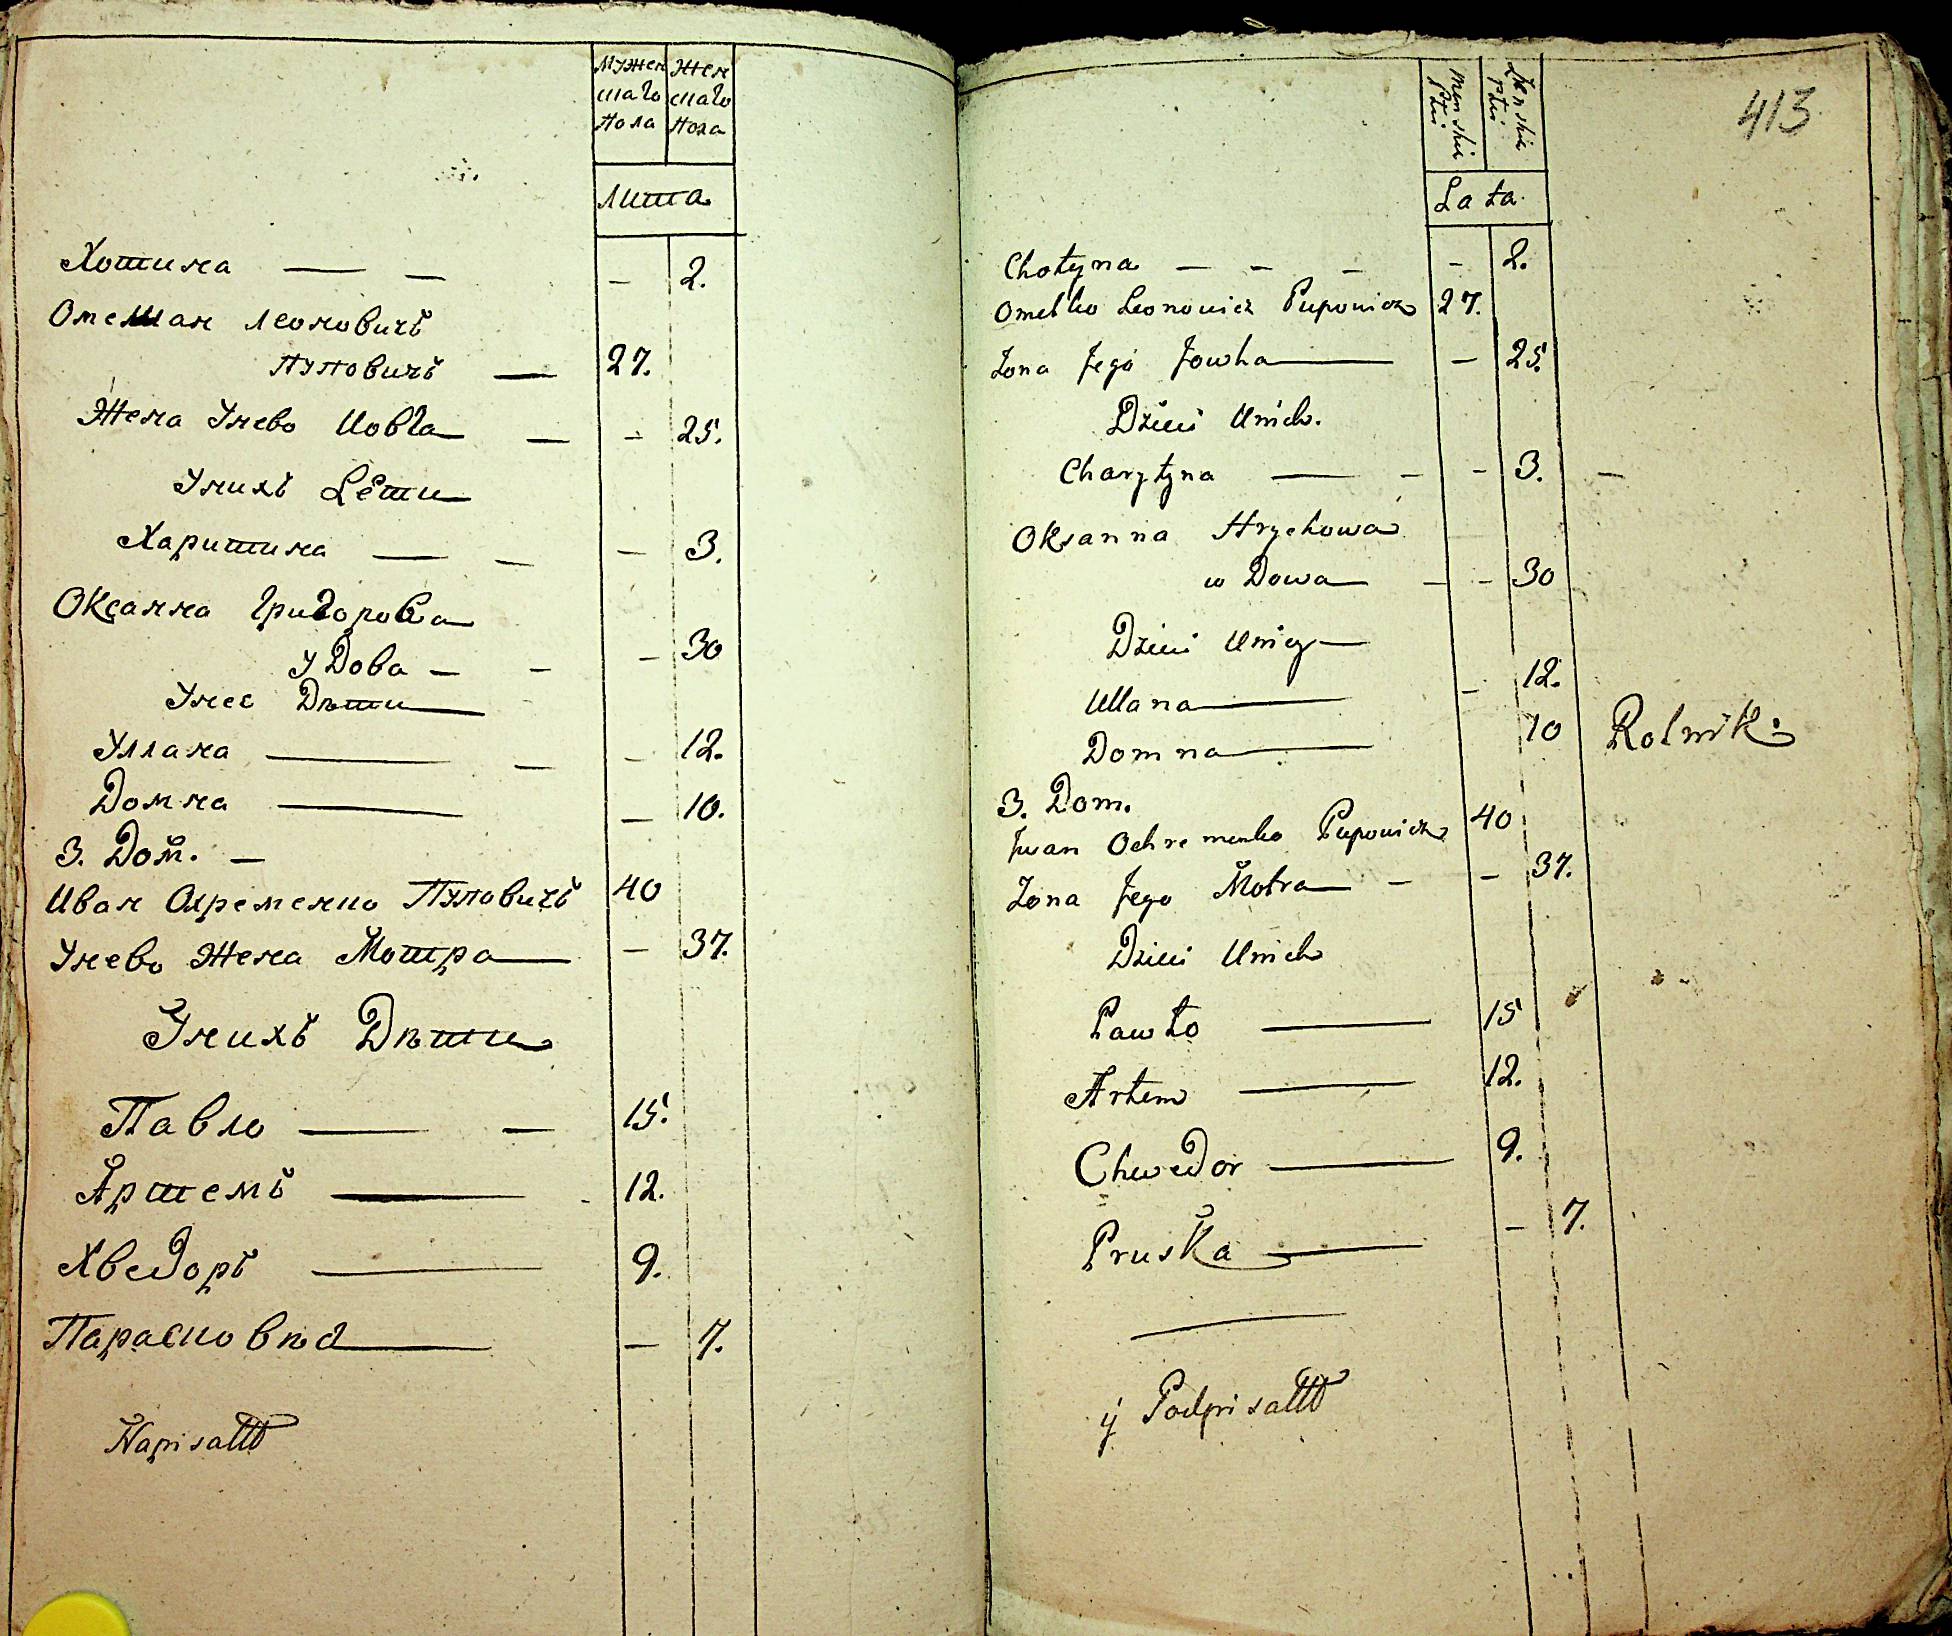 Мужеска
шаго
Пола
Жен
скаго
Пола
Лита
Хотина — — — 2.
Омелян Леоновичъ
Пуповичъ — 27.
Жена Унево Иовга — — 25.
Унихъ Lѣти
Харитина — — — 3.
Оксанна Григорова
удова — — — 30
Унее Dѣти
Уллана — — — 12.
Домна — — 10.
3. Dом. —
Иван Охременко Пуповичъ 40
Унево Жена Мотра — — 37.
Унихъ Dѣти
Павло — — 15.
Артемъ — 12.
Хведоръ — 9.
Парасковѣа — — 7.
Napisałł
413
Menskiei
Płci
Żenskiei
Płci
Lata
Chotyna — — — — 2.
Omelko Leonowicz Puponicz 27.
Żona Jego Jowha — — 25.
Dzieci Unich.
Charytyna — — — 3. —
Oksanna Hrychowa
w Dowa — — — 30
Dzieci Uniey —
Ullana — — 12.
Domna — 10 Rolnik.
3. Dom.
Jwan Ochremenko Puponicz 40
Żona Jego Motra — — — 37.
Dzieci Unich
Pawło — 15
Artem — 12.
Chwedor — 9.
Pruska — — 7.
ÿ Podpisałł